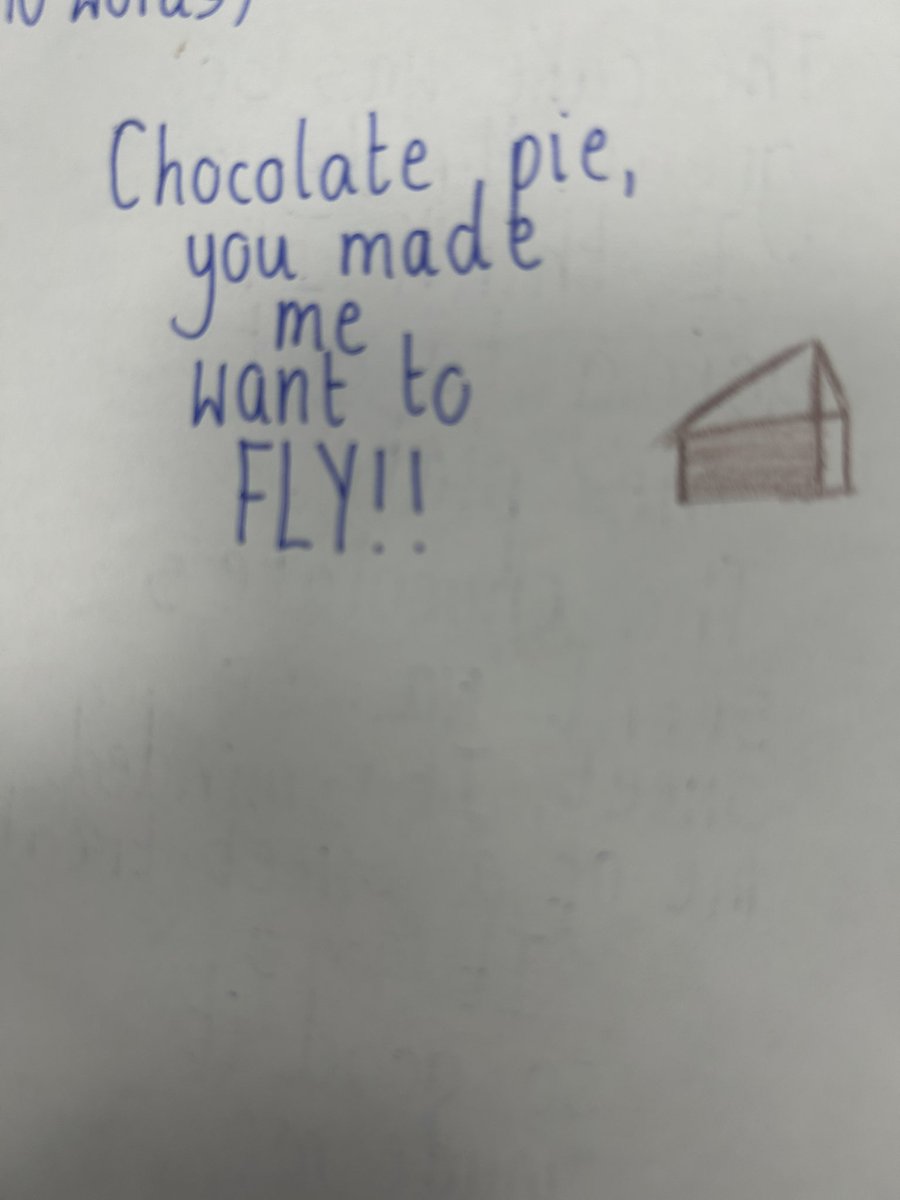 words)
Chocolate pie,
you made
me
want to
FLY!!